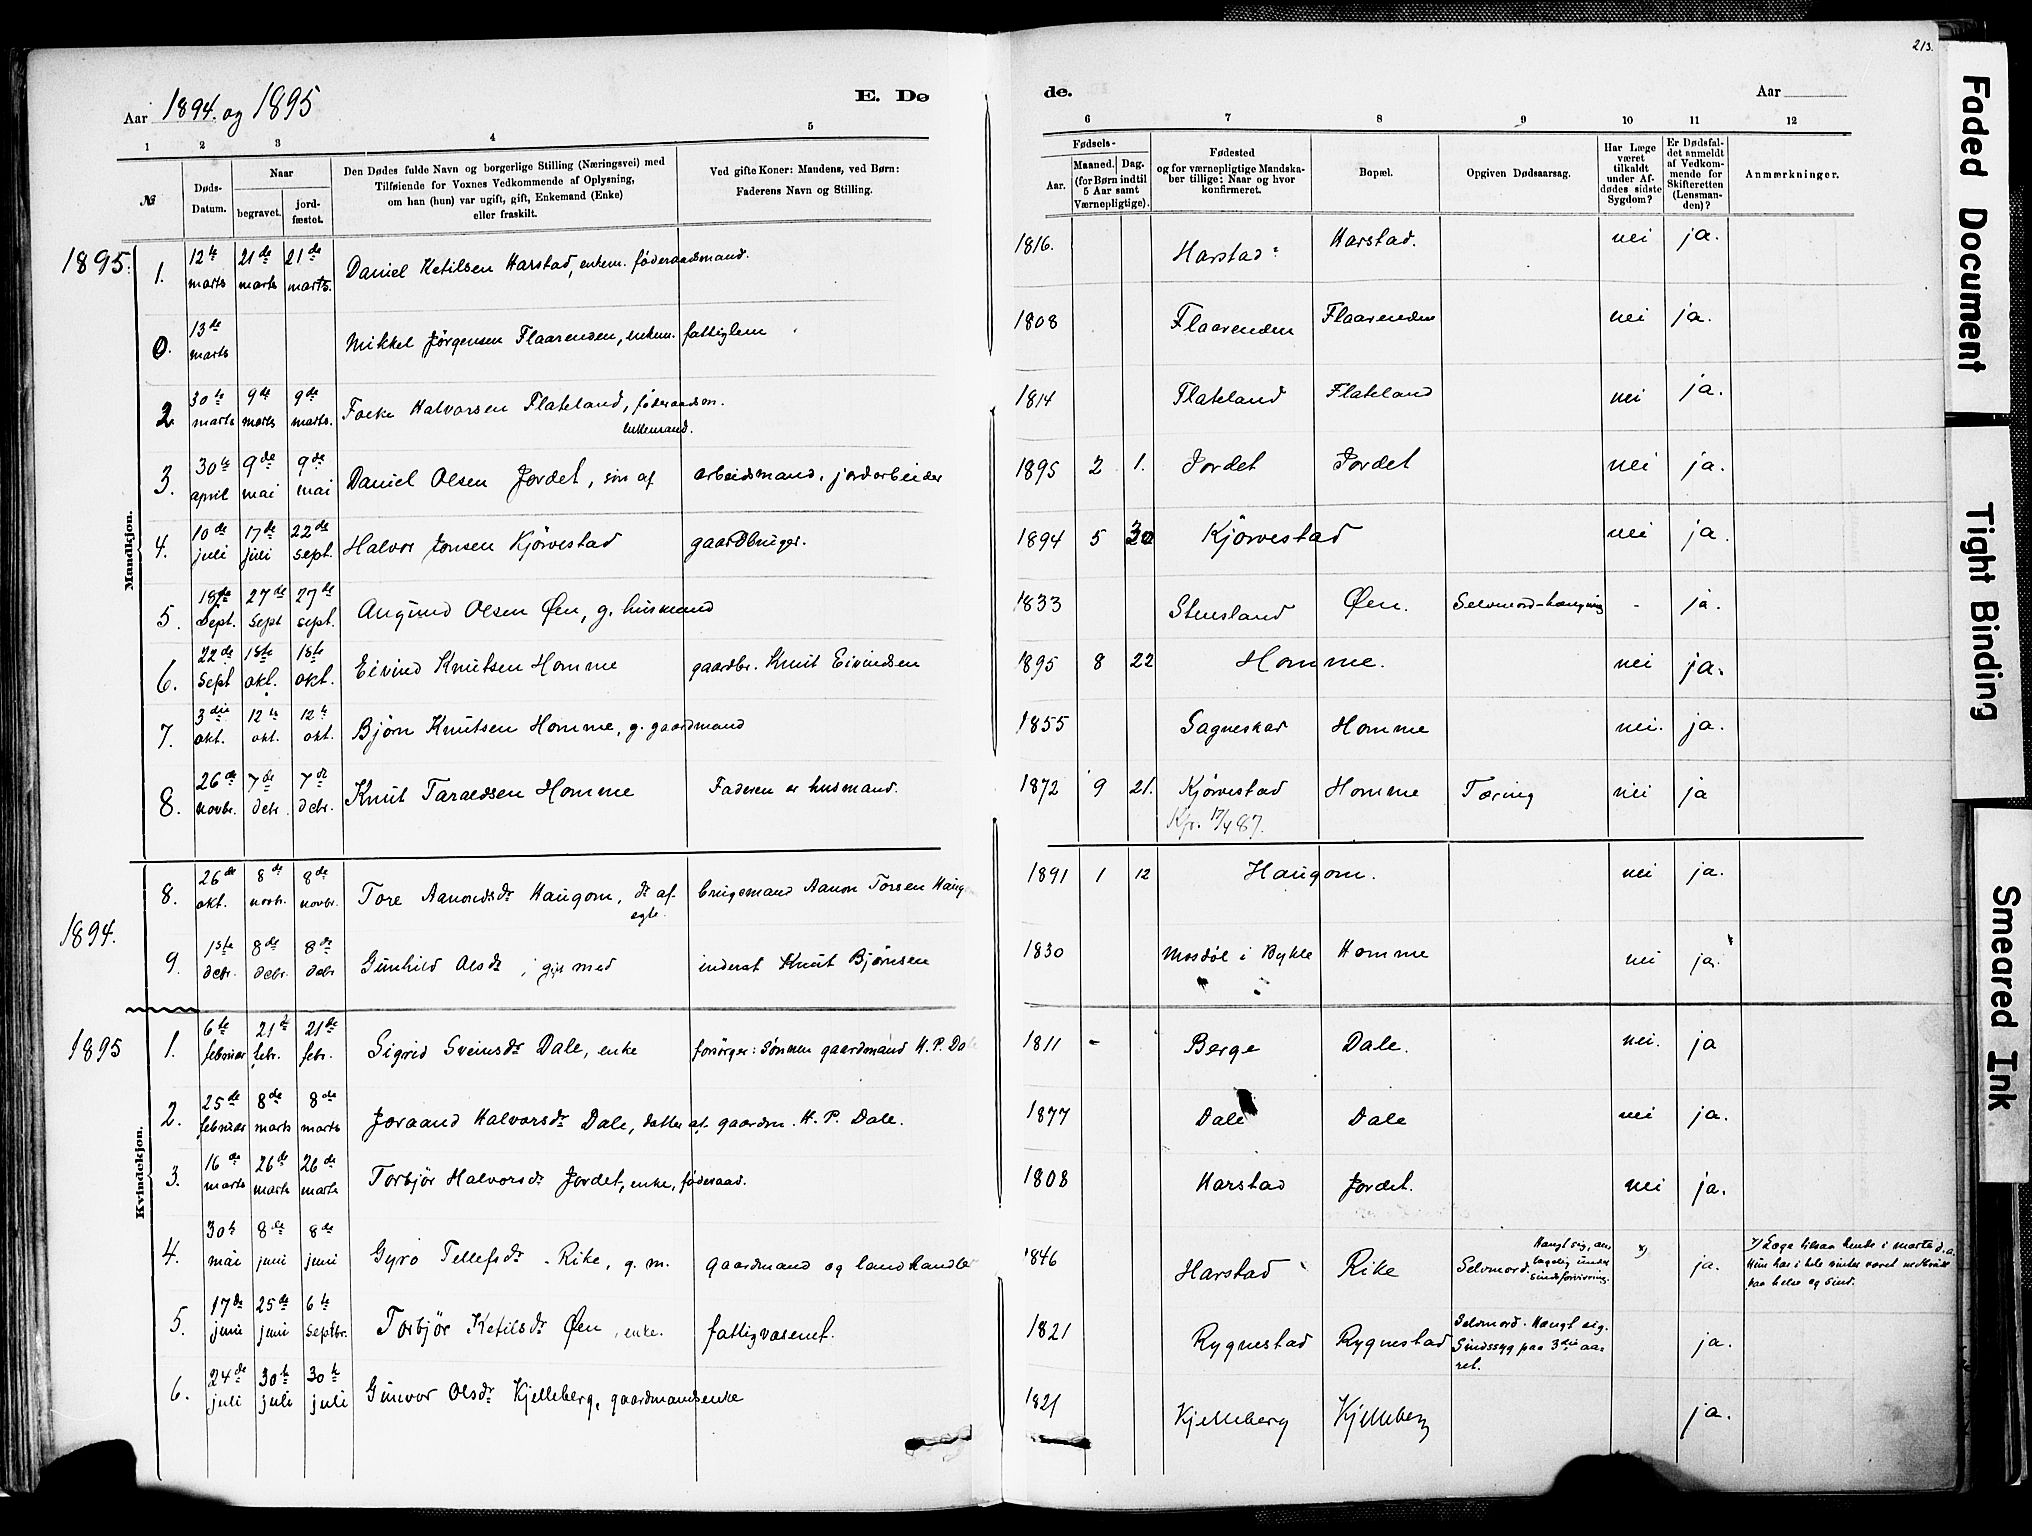 213.
Aar 1894. og 1895
E. Dø
de.
Aar
1 2 3 4 5 6 7 8 9 10 11 12
№
Døds-Datum.
Naar
begravet.
jord-fæstet.
Den Dødes fulde Navn og borgerlige Stilling (Næringsvei) med
Tilføiende for Voxnes Vedkommende af Oplysning,
om han (hun) var ugift, gift, Enkemand (Enke)
eller fraskilt.
Ved gifte Koner: Mandens, ved Børn:
Faderens Navn og Stilling.
Fødsels-
Aar.
Maaned. Dag.
(for Børn indtil
5 Aar samt
Værnepligtige).
Fødested
og for værnepligtige Mandska-
ber tillige: Naar og hvor
konfirmeret.
Bopæl.
Opgiven Dødsaarsag.
Har Læge
været
tilkaldt
under Af-
dødes sidste
Sygdom?
Er Dødsfal-
det anmeldt
af Vedkom-
mende for
Skifteretten
(Lensman-
den)?
Anmærkninger.
Mandkjøn.
1895. 1. 12te marts 21de marts 21de marts. Daniel Ketilsen Harstad, enkem. føderaadsmand. 1816. Harstad Harstad. nei ja.
0. 13de marts Mikkel Jørgensen Flaarenden, enkem. fattiglem 1808 Flaarenden Flaarenden nei ja.
2. 30te marts 9de marts 9de marts. Folke Halvorsen Flateland, føderaadsm. enkemand. 1814 Flateland Flateland nei ja.
3. 30te april 9de mai 9de mai Daniel Olsen Jordet, søn af arbeidsmand, jordarbeider 1895 2 1. Jordet Jordet nei ja.
4. 10de juli 17de juli 22de sept. Halvor Jonsen Kjørvestad gaardbruger. 1894 5 30 Kjørvestad nei ja.
5. 18de Sept. 27de Sept 27de sept. Augund Olsen Øen, g. husmand 1833 Stensland Øen. Selvmord-hængning - ja.
6. 22de Sept 18te okt. 18te okt. Eivind Knutsen Homme gaardbr. Knut Eivindsen 1895 8 22 Homme. nei ja.
7. 3die okt. 12te okt. 12te okt. Bjørn Knutsen Homme, g. gaardmand 1855 Sagneskar Homme nei. ja.
8. 26de novbr. 7de debr. 7de debr. Knut Taraldsen Homme Faderen er husmand. 1872 9 21. Kjørvestad Homme Tæring nei ja
Kfr. 17/4 87.
Kvindekjøn.
1894. 8. 26de okt. 8de novbr. 8de novbr. Tore Aanondsdr Haugom, dr af egte. brugemand Aanon Torsen Haug 1891 1 12 Haugom. nei ja.
9. 1ste debr. 8de debr. 8de debr Gunhild Olsdr, gift med inderst Knut Bjørnsen 1830 Mosdøl i Bykle Homme nei ja.
1895 1. 6te februar 21de febr. 21de febr. Sigrid Sveinsdr Dale, enke forsørger: Sønnen gaardmand H. P. Dale 1811 - Berge Dale. nei. ja
2. 25de februar 8de marts 8de marts Joraand Halvorsdr Dale, datter af gaardm. H. P. Dale. 1877 Dale Dale nei ja.
3. 16de marts 26de marts 26de marts Torbjør Halvorsdr Jordet, enke, føderaad. 1808 Harstad Jordet. nei ja.
4. 30te mai 8de juni 8de juni Gyro Tellefsdr Rike, g. m. gaardmand og landhandler 1846 Harstad Rike Selvmord. Hængt sig, antagelig under sindsforvirring. *) ja. *) Læge tilsaa hende i marts d. a. Hun har i hele vinter været nedbrudt paa helse og sind.
5. 17de juni 25de juni 6te Septbr. Torbjør Ketilsdr Øen, enke. fattigvæsenet. 1821 Rygnestad Rygnestad Selvmord. Hængt sig. Sindssyg paa 3die aaret. ja.
6. 24de juli 30te juli 30te juli Gunvor Olsdr Kjelleberg, gaardmandsenke 1821 Kjelleberg Kjelleberg ja.
Faded Document
Tight Binding
Smeared Ink